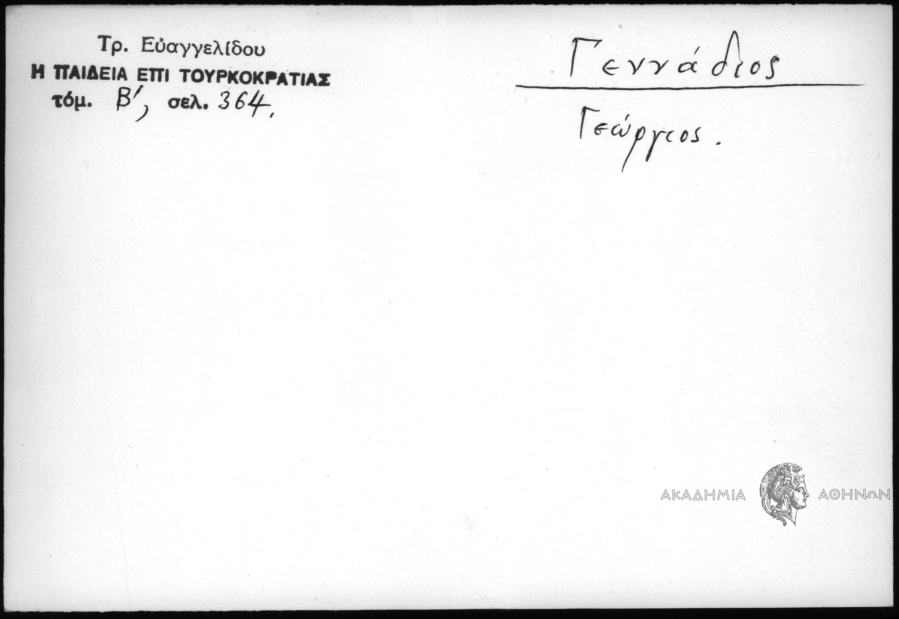 Τρ. Εὐαγγελίδου
Η ΠΑΙΔΕΙΑ ΕΠΙ ΤΟΥΡΚΟΚΡΑΤΙΑΣ
τόμ. Β', σελ. 364.
Γεννάδιος
Γεώργιος.
ΑΚΑΔΗΜΙΑ ΑΘΗΝΩΝ